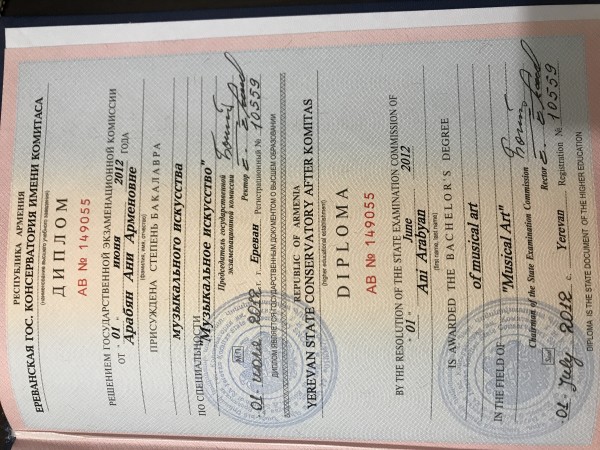 РЕСПУБЛИКА АРМЕНИЯ
ЕРЕВАНСКАЯ ГОС. КОНСЕРВАТОРИЯ ИМЕНИ КОМИТАСА
(наименование высшего учебного заведения)
ДИПЛОМ
АВ № 149055
РЕШЕНИЕМ ГОСУДАРСТВЕННОЙ ЭКЗАМЕНАЦИОННОЙ КОМИССИИ
ОТ " 01 " июня 2012 ГОДА
Арабян Ани Арменовне
(фамилия, имя, отчество)
ПРИСУЖДЕНА СТЕПЕНЬ БАКАЛАВРА
музыкального искусства
ПО СПЕЦИАЛЬНОСТИ
"Музыкальное искусство"
Председатель государственной
экзаменационной комиссии
Ректор
М.П.
"01" июля 2012 г. г. Ереван Регистрационный № 10559
ДИПЛОМ ЯВЛЯЕТСЯ ГОСУДАРСТВЕННЫМ ДОКУМЕНТОМ О ВЫСШЕМ ОБРАЗОВАНИИ
REPUBLIC OF ARMENIA
YEREVAN STATE CONSERVATORY AFTER KOMITAS
(higher educational establishment)
DIPLOMA
AB № 149055
BY THE RESOLUTION OF THE STATE EXAMINATION COMMISSION OF
" 01 " June 2012
Ani Arabyan
(first name, last name)
IS AWARDED THE BACHELOR'S DEGREE
of musical art
IN THE FIELD OF
"Musical Art"
Chairman of the State Examination Commission
Rector
"01" July 2012 c. Yerevan Registration № 10559
DIPLOMA IS THE STATE DOCUMENT OF THE HIGHER EDUCATION